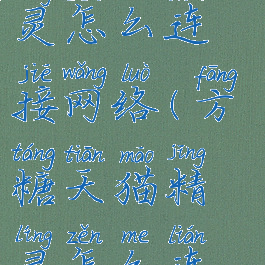 灵怎么连
jiē wǎng luò fāng
接网络(方
táng tiān māo jīng
糖天猫精
líng zěn me lián
灵怎么连